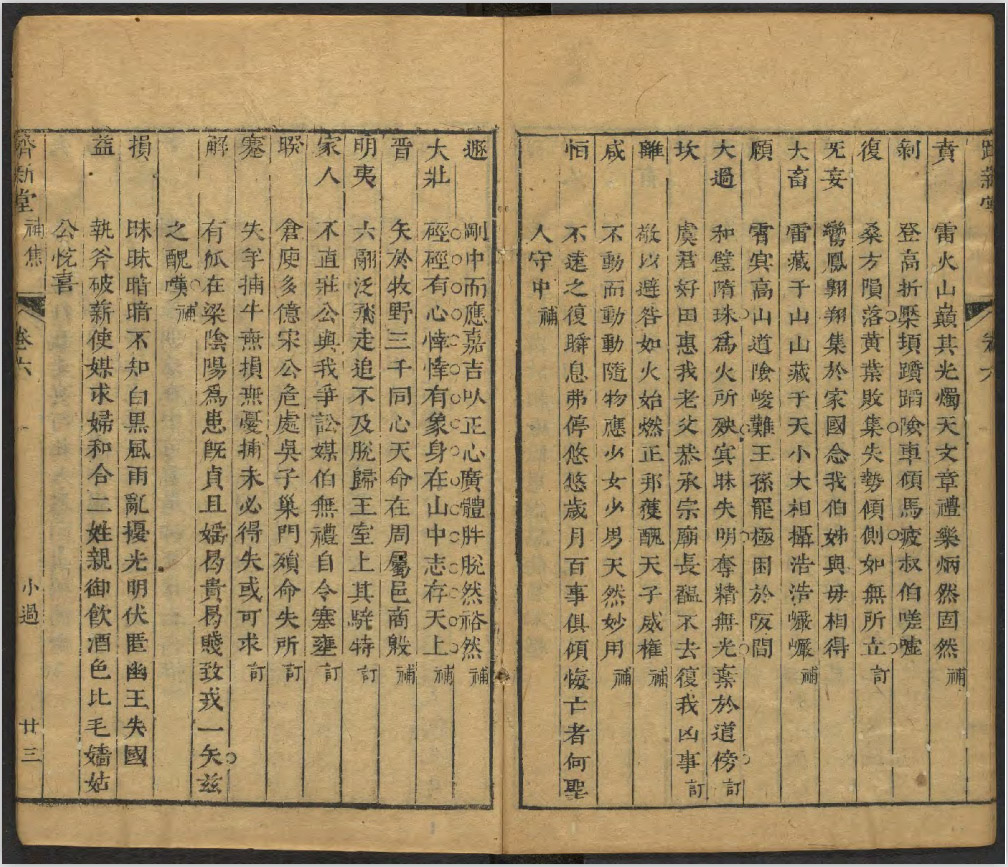 賁 雷火山巔其光燭天文章禮樂炳然固然 補
剝 登高折槩頊躓蹈險車傾馬疲叔伯嗟噓
復 桑方隕落黃葉敗集失勢傾側如無所立 訂
无妄 鸞鳳翱翔集於家國念我伯姊與毋相得
大畜 雷藏于山山藏于天小大相攝浩浩巗巗 補
頤 霄冥高山道險峻難王孫罷極困於阪間
大過 和璧隋珠為火所殃冥昧失明奪精無光葉於道傍 訂
坎 虞君好田惠我老父恭承宗廟長齀不去復我凶事 訂
離 敬以避咎如火始燃正那獲醜天子威權 補
咸 不動而動動隨物應少女少男天然妙用 補
恒 不遠之復瞬息弗停悠悠歲月百事俱傾悔亡者何聖
人守中 補
遯 剛中而應嘉吉以正心廣體胖脫然裕然 補
大壯 硜硜有心悻悻有象身在山中志存天上 補
晉 矢於牧野三千同心天命在周屬邑商殷 補
明夷 六翮泛飛走追不及脫歸王室上其騂特 訂
家人 不直莊公與我爭訟媒伯無禮自令塞壅 訂
睽 倉庾多億宋公危處吳子巢門殞命失所 訂
蹇 失羊捕牛無損無憂捕未必得失或可求 訂
解 有狐在梁陰陽為患既貞且嬌曷貴曷賤致戎一矢茲
之醜嘆 補
損 昧昧暗暗不知白黑風雨亂擾光明伏匿幽王失國
益 執斧破薪使媒求婦和合二姓親御飲酒色比毛嬙姑
公悅喜
濟新堂 補焦 卷六 小過 廿三